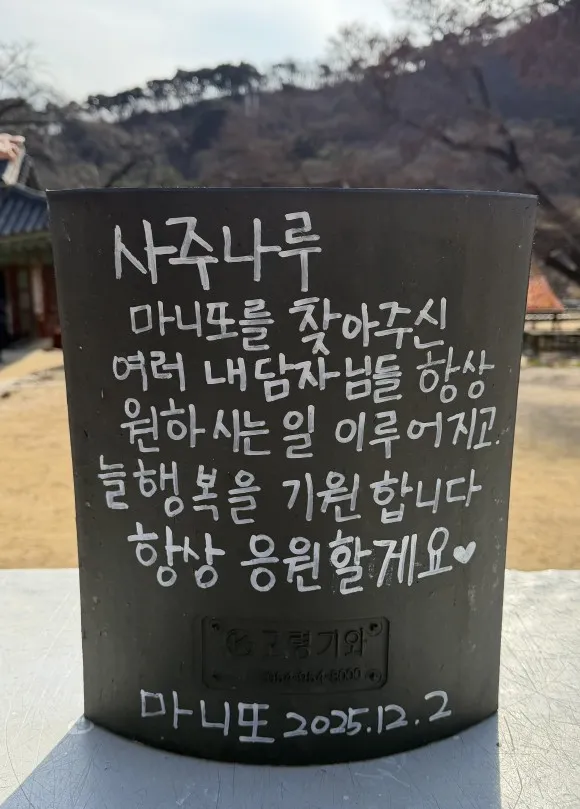 사주나루
마니또를 찾아주신
여러 내담자님들 항상
원하시는일 이루어지고.
늘행복을 기원합니다
항상 응원할게요♥
고령기와
마니또 2025.12.2